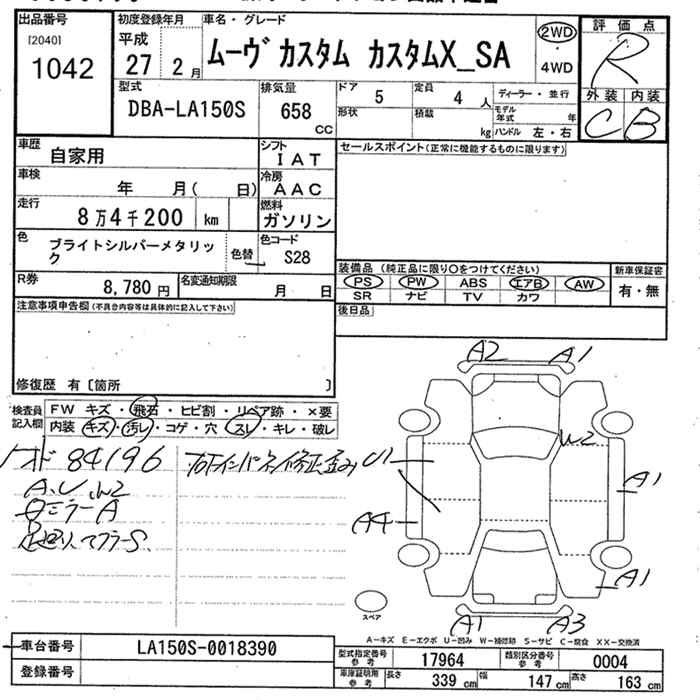 出品番号 初度登録年月 車名・グレード 評価点
[2040] 平成 ムーヴ カスタム カスタムX_SA 2WD R
1042 27 2月 4WD
型式 排気量 ドア 5 定員 4人 ディーラー・並行 外装 内装
DBA-LA150S 658 cc 形状 積載 kg モデル年式 年 C B
ハンドル 左・右
車歴 自家用 シフト IAT セールスポイント(正常に機能するものに限ります)
車検 年 月( 日) 冷房 AAC
走行 8万4千200 km 燃料 ガソリン
色 ブライトシルバーメタリック 色替 色コード S28
R券 8,780円 名変通知期限 月 日
装備品 (純正品に限り○をつけてください) 新車保証書
PS PW ABS エアB AW 有・無
SR ナビ TV カワ
注意事項申告欄(不具合内容等は具体的に記入して下さい) 後日品
修復歴 有〔箇所 〕
検査員記入欄 FW キズ・飛石・ヒビ割・リペア跡・×要
内装 キズ・汚レ・コゲ・穴・スレ・キレ・破レ
84196
A、U、W2
ミラーA
マフラーS
A2 A1
W2
U1
A1
A4
A1
A1 A3
スペア
A-キズ E-エクボ U-凹み W-補修跡 S-サビ C-腐食 XX-交換済
車台番号 LA150S-0018390 型式指定番号 参考 17964 類別区分番号 参考 0004
登録番号 車庫証明用 参考 長さ 339 cm 幅 147 cm 高さ 163 cm